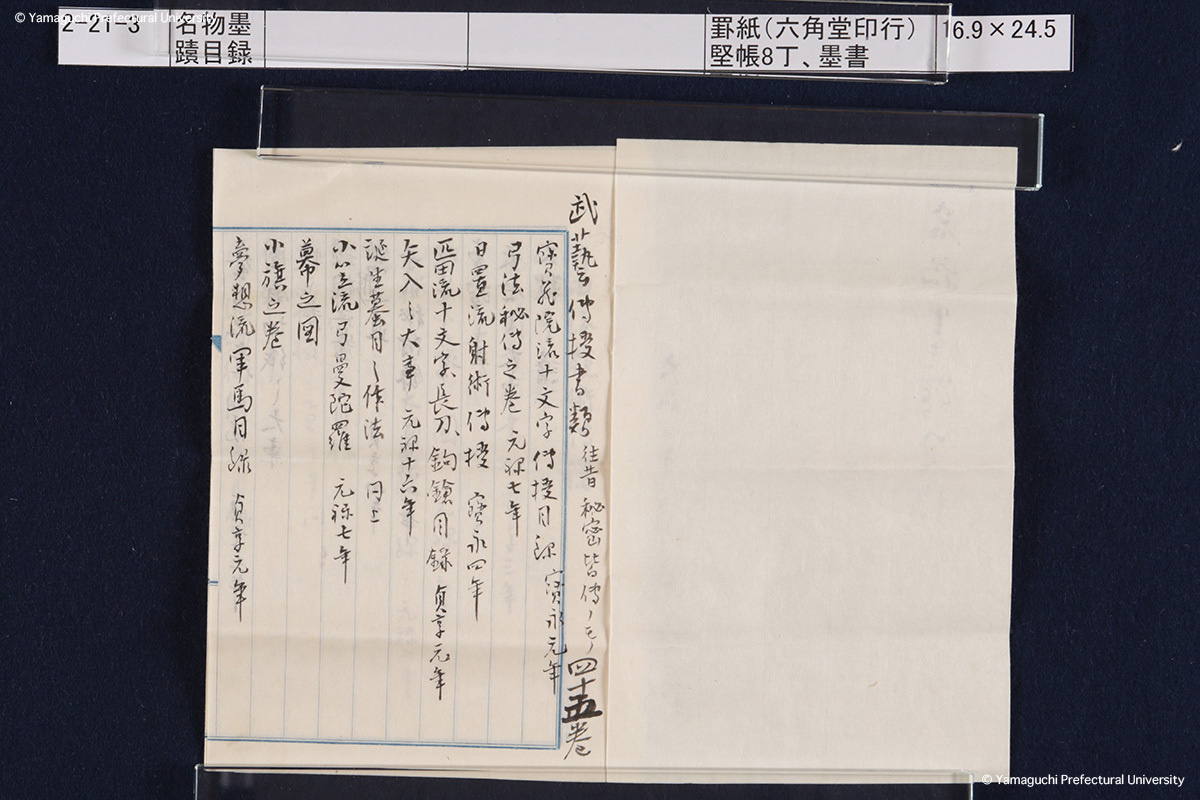 © Yamaguchi Prefectural University
2-21-3
名物墨
蹟目録
罫紙(六角堂印行)
竪帳8丁、墨書
16.9×24.5
武藝傳授書類 往昔秘密皆傳ノモノ 四十五巻
寶蔵院流十文字傳授目録 寶永元年
弓法秘傳之巻 元禄七年
日置流射術傳授 寶永四年
匹田流十文字、長刀、鉤鎗目録 貞享元年
矢入之大事 元禄十六年
誕生蟇目之作法 同上
小笠流弓曼陀羅 元禄七年
幕之図
小旗之巻
夢想流軍馬目録 貞享元年
© Yamaguchi Prefectural University